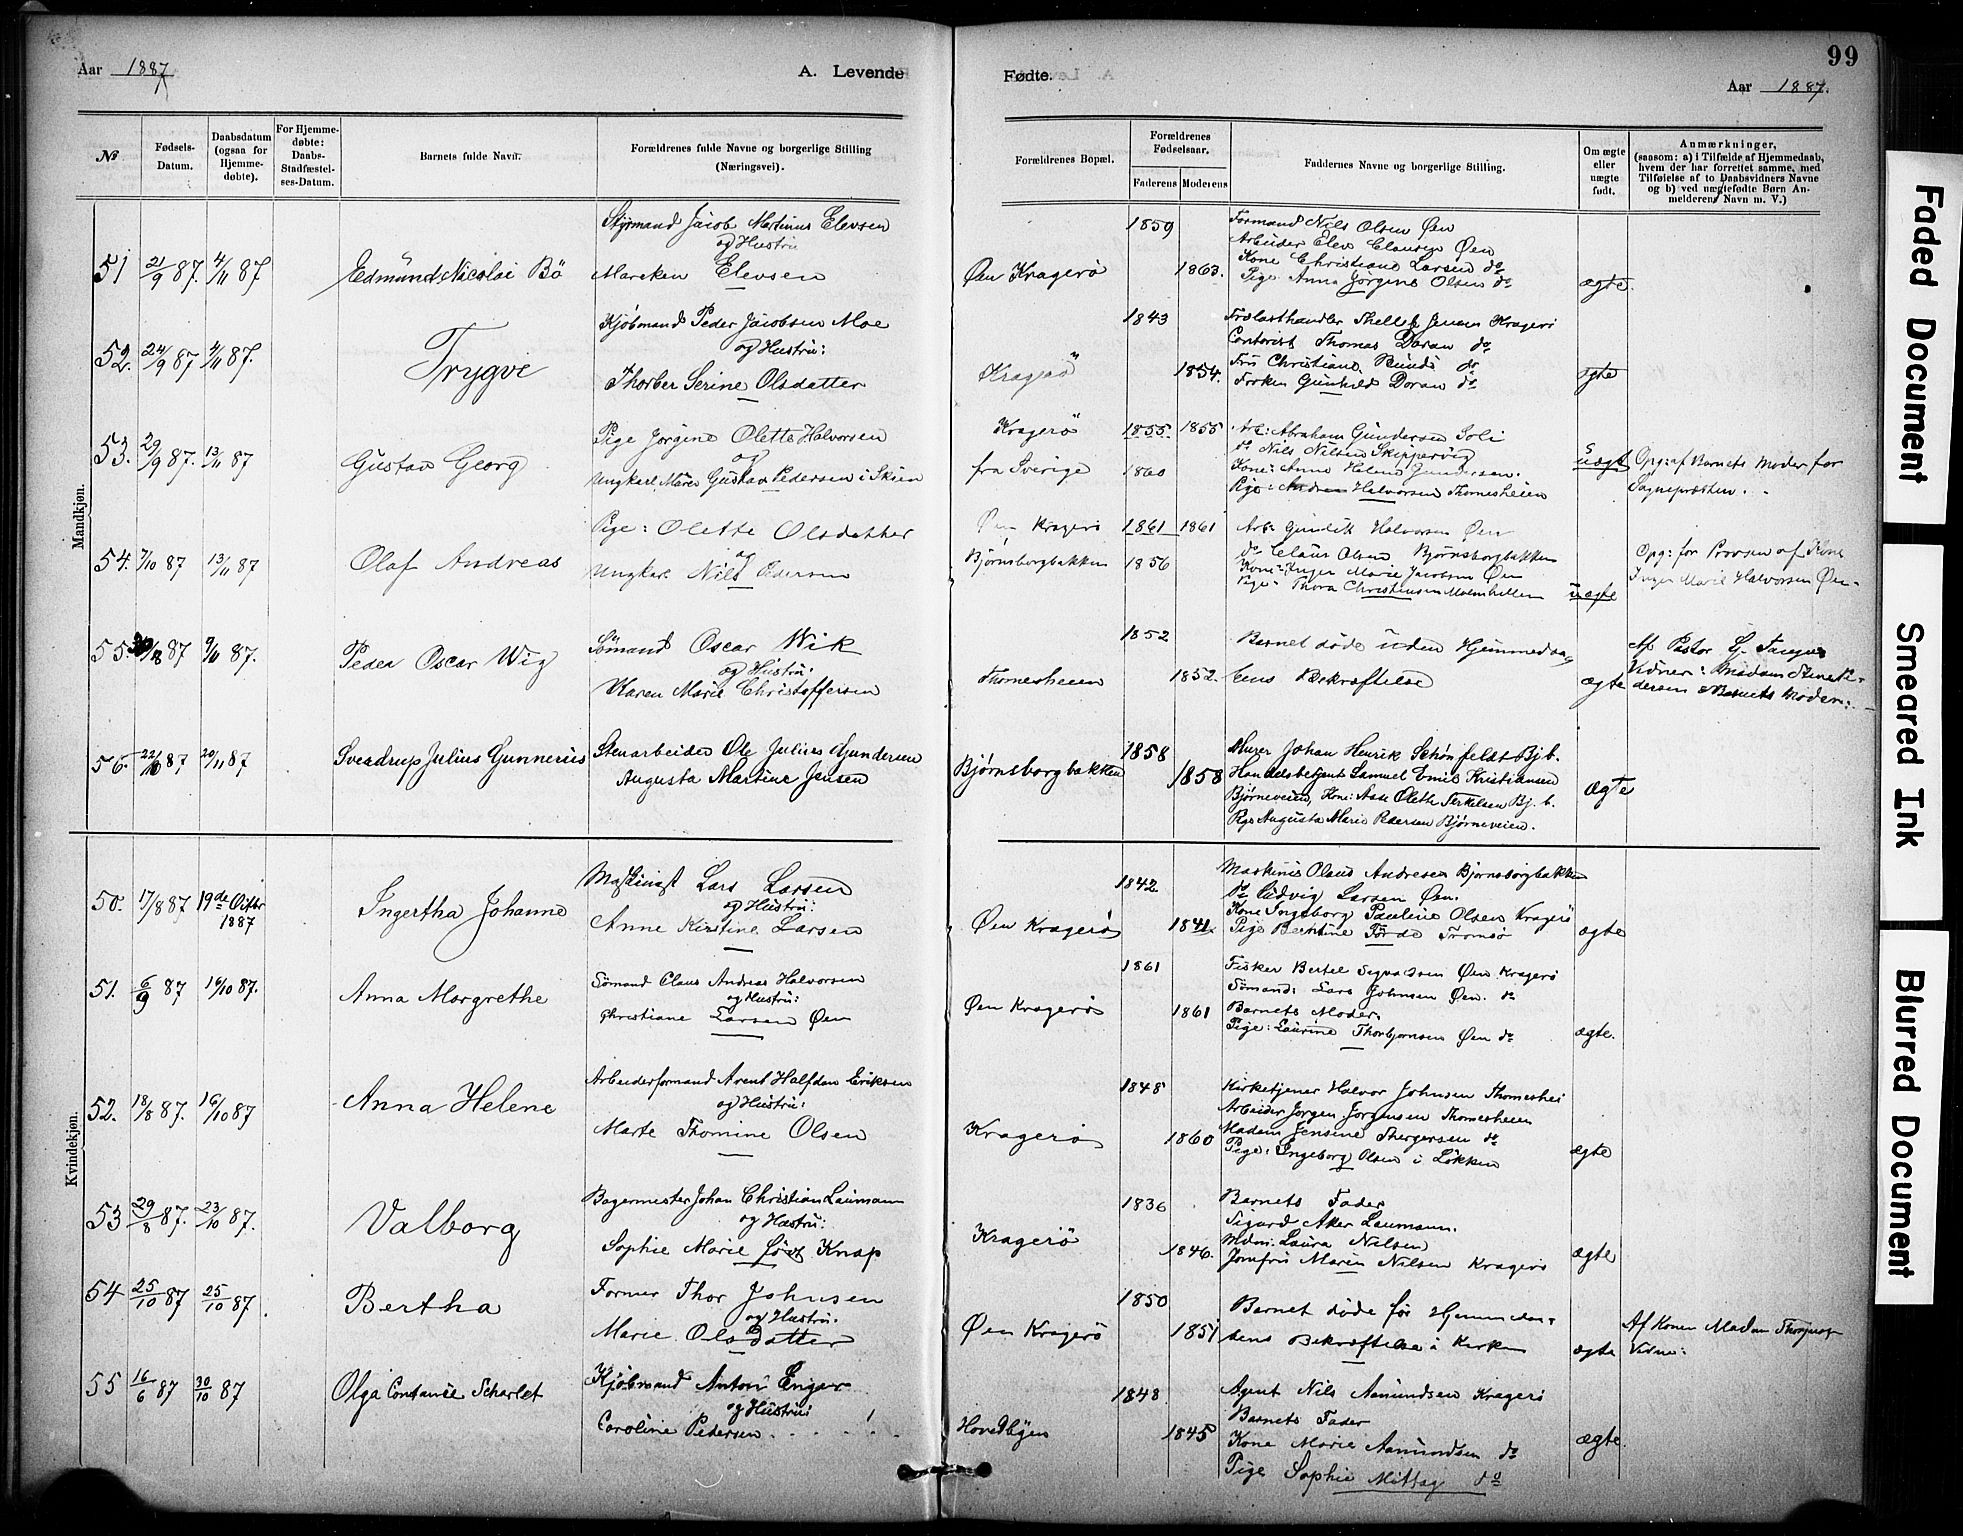 99
Aar 1887
A. Levende
Fødte.
Aar 1887.
№
Fødsels-Datum.
Daabsdatum (ogsaa for Hjemmedøbte).
For Hjemmedøbte: Daabs-Stadfæstelses-Datum.
Barnets fulde Navn.
Forældrenes fulde Navne og borgerlige Stilling (Næringsvei).
Forældrenes Bopæl.
Forældrenes Fødselsaar.
Faderens
Moderens
Faddernes Navne og borgerlige Stilling.
Om ægte eller uægte født.
Anmærkninger,
(saasom: a) i Tilfælde af Hjemmedaab, hvem der har forrettet samme, med Tilføielse af to Daabsvidners Navne og b) ved uægtefødte Børn Anmelderens Navn m. V.)
Mandkjøn.
51 21/9 87. 4/11 87
Edmund Nicolai Bö
Styrmand Jacob Martinus Elevsen
og Hustru
Mareken Elevsen
Øen Kragerö
1859
1863.
Formand Nils Olsen Øen
Arbeider Elev Clausen Øen
Kone Christiane Larsen do
Pige Anna Jörgine Olsen do
ægte.
52. 24/9 87 4/11 87.
Trygve
Kjöbmand Peder Jacobsen Moe
og Hustru:
Thorber Serine Olsdatter
Kragerö
1843
1854.
Thellef Jensen Kragerö
Contorist Thomas Doran do
Fru Christiane do
Frøken Gunhild Doran do
ægte
53. 29/9 87. 13/11 87
Gustav Georg
Pige Jörgine Olette Halvorsen
og
Ungkarl Gustav Pedersen i Skien
Kragerö
fra Sverige
1855. 1855
1860
Arb: Abraham Gundersen Soli
do Nils Nilsen Skippervig
Kone: Anne Helene Gundersen.
Pige: Andrea Halvorsen Thomesheien
uægte
Opg: af Barnets Moder for
Sognepresten.
54. 7/10 87 13/11 87
Olaf Andreas
Pige: Olette Olsdatter
og
Ungkarl Nils Pedersen
Øen Kragerö
Bjørnsborgbakken
1861 1861
1856
Arb: Gunlik Halvorsen Øen
do Claus Olsen Bjørnsborgbakken
Kone: Inger Marie Jacobsen Øen
Pige: Thora Christensen Malmhellen
uægte
Opg: for Provsen af Kone
Inger Marie Halvorsen Øen.
55. 87 9/10 87.
Peder Oscar Wig
Sömand Oscar Wik
og Hustru:
Karen Marie Christoffersen
Thomesheien
1852
1852.
Barnet döde uden Hjemmedaa-
bens Bekræftelse
ægte
Af Pastor
Vidner: Madam Pe-
dersen & Barnets Moder.
56. 22/10 87 20/11 87
Sverdrup Julius Gunnerius
Stenarbeider Ole Julius Gundersen
Augusta Martine Jensen
Bjørnsborgbakken
1858
1858
Murer Johan Henrik Schönfeldt Bj b.
Handelsbetjent Samuel Emil Kristiansen
Bjørneveien, Kone: Aase Olette Terkelsen Bj. b.
Pige Augusta Marie Pedersen Bjørneveien.
ægte
Kvindekjøn.
50. 17/8 87 19de Octbr 1887
Ingertha Johanne
Maskinist Lars Larsen
og Hustru:
Anne Kirstine Larsen
Øen Kragerö
1842.
1841.
Maskinist Olaus Andresen Bjørnsborgbakken
do Ludvig Larsen Øen.
Kone Ingeborg Pauline Olsen Kragerö
Pige Berntine Förde Tromsö
ægte
51. 6/9 87 16/10 87.
Anna Margrethe
Sömand Claus Andreas Halvorsen
og Hustru:
Christiane Larsen Øen
Øen Kragerö
1861
1861
Fisker Bertel Øen Kragerö
Sömand: Lars Johnsen Øen. do
Barnets Moder.
Pige: Laurine Thorbjørnsen Øen do
ægte.
52. 18/8 87. 16/10 87
Anna Helene
Arbeiderformand Arent Halfdan Eriksen
og Hustru:
Marte Thomine Olsen
Kragerö
1848
1860
Kirketjener Halvor Johnsen Thomeshei
Arbeider Jörgen Jörgensen Thomesheien
Madam Jensine Thergersen do
Pige: Ingeborg Olsen i Løkken
ægte
53 29/8 87. 23/10 87.
Valborg
Bagermester Johan Christian Laumann
og Hustru:
Sophie Marie född Knap
Kragerö
1836
1846.
Barnets Fader
Sigurd Aker Laumann.
Mdm. Laura Nilsen
Jomfru Maren Nilsen Kragerö
ægte
54 25/10 87 25/10 87.
Bertha
Former Thor Johnsen
og Hustru.
Marie Olsdatter
Øen Kragerö
1850
1851
Barnet döde för Hjemmedaa-
bens Bekræftelse i Kirken
ægte
Af Konen Madam
Vidne:
55 16/6 87 30/10 87
Olga Constance Scharlet
Kjöbmand Anton Enger
og Hustru:
Caroline Pedersen
Hovedbyen
1848.
1845
Agent Nils Aamundsen Kragerö
Barnets Fader
Kone Marie Aamundsen do
Pige Sophie Mittag do
ægte.
Faded Document
Smeared Ink
Blurred Document